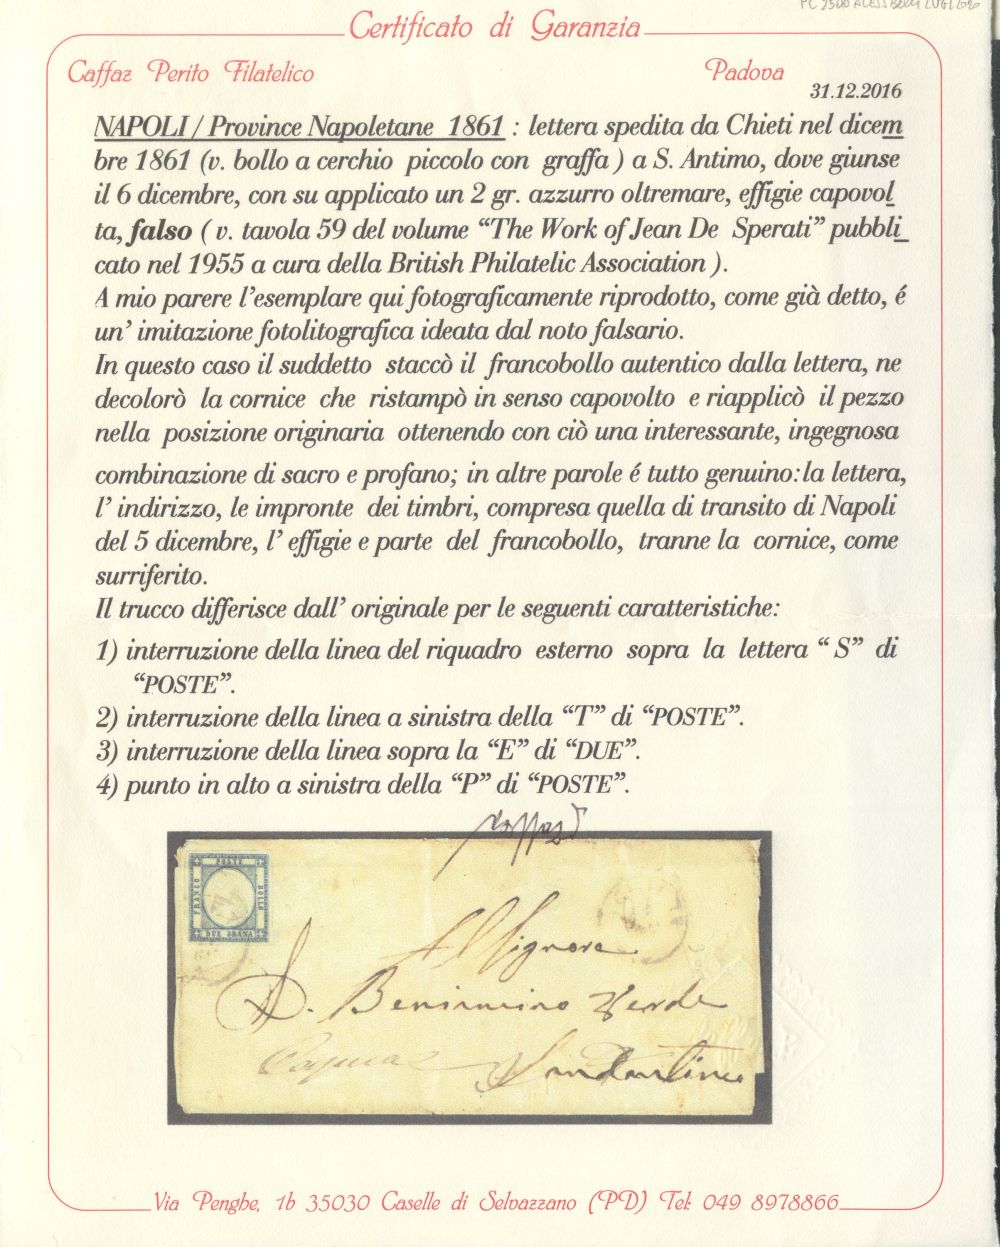 PC 2500
Certificato di Garanzia
Caffaz Perito Filatelico
Padova
31.12.2016
NAPOLI / Province Napoletane 1861 : lettera spedita da Chieti nel dicem
bre 1861 (v. bollo a cerchio piccolo con graffa ) a S. Antimo, dove giunse
il 6 dicembre, con su applicato un 2 gr. azzurro oltremare, effigie capovol_
ta, falso ( v. tavola 59 del volume “The Work of Jean De Sperati” pubbli_
cato nel 1955 a cura della British Philatelic Association ).
A mio parere l’esemplare qui fotograficamente riprodotto, come già detto, é
un’ imitazione fotolitografica ideata dal noto falsario.
In questo caso il suddetto staccò il francobollo autentico dalla lettera, ne
decolorò la cornice che ristampò in senso capovolto e riapplicò il pezzo
nella posizione originaria ottenendo con ciò una interessante, ingegnosa
combinazione di sacro e profano; in altre parole é tutto genuino: la lettera,
l’ indirizzo, le impronte dei timbri, compresa quella di transito di Napoli
del 5 dicembre, l’ effigie e parte del francobollo, tranne la cornice, come
surriferito.
Il trucco differisce dall’ originale per le seguenti caratteristiche:
1) interruzione della linea del riquadro esterno sopra la lettera “ S” di
“POSTE”.
2) interruzione della linea a sinistra della “T” di “POSTE”.
3) interruzione della linea sopra la “E” di “DUE”.
4) punto in alto a sinistra della “P” di “POSTE”.
Caffaz
POSTE
FRANCO
BOLLO
DUE GRANA
Al Signore
D. Beniamino Verde
Sant'Antimo
Via Penghe, 1b 35030 Caselle di Selvazzano (PD) Tel: 049 8978866